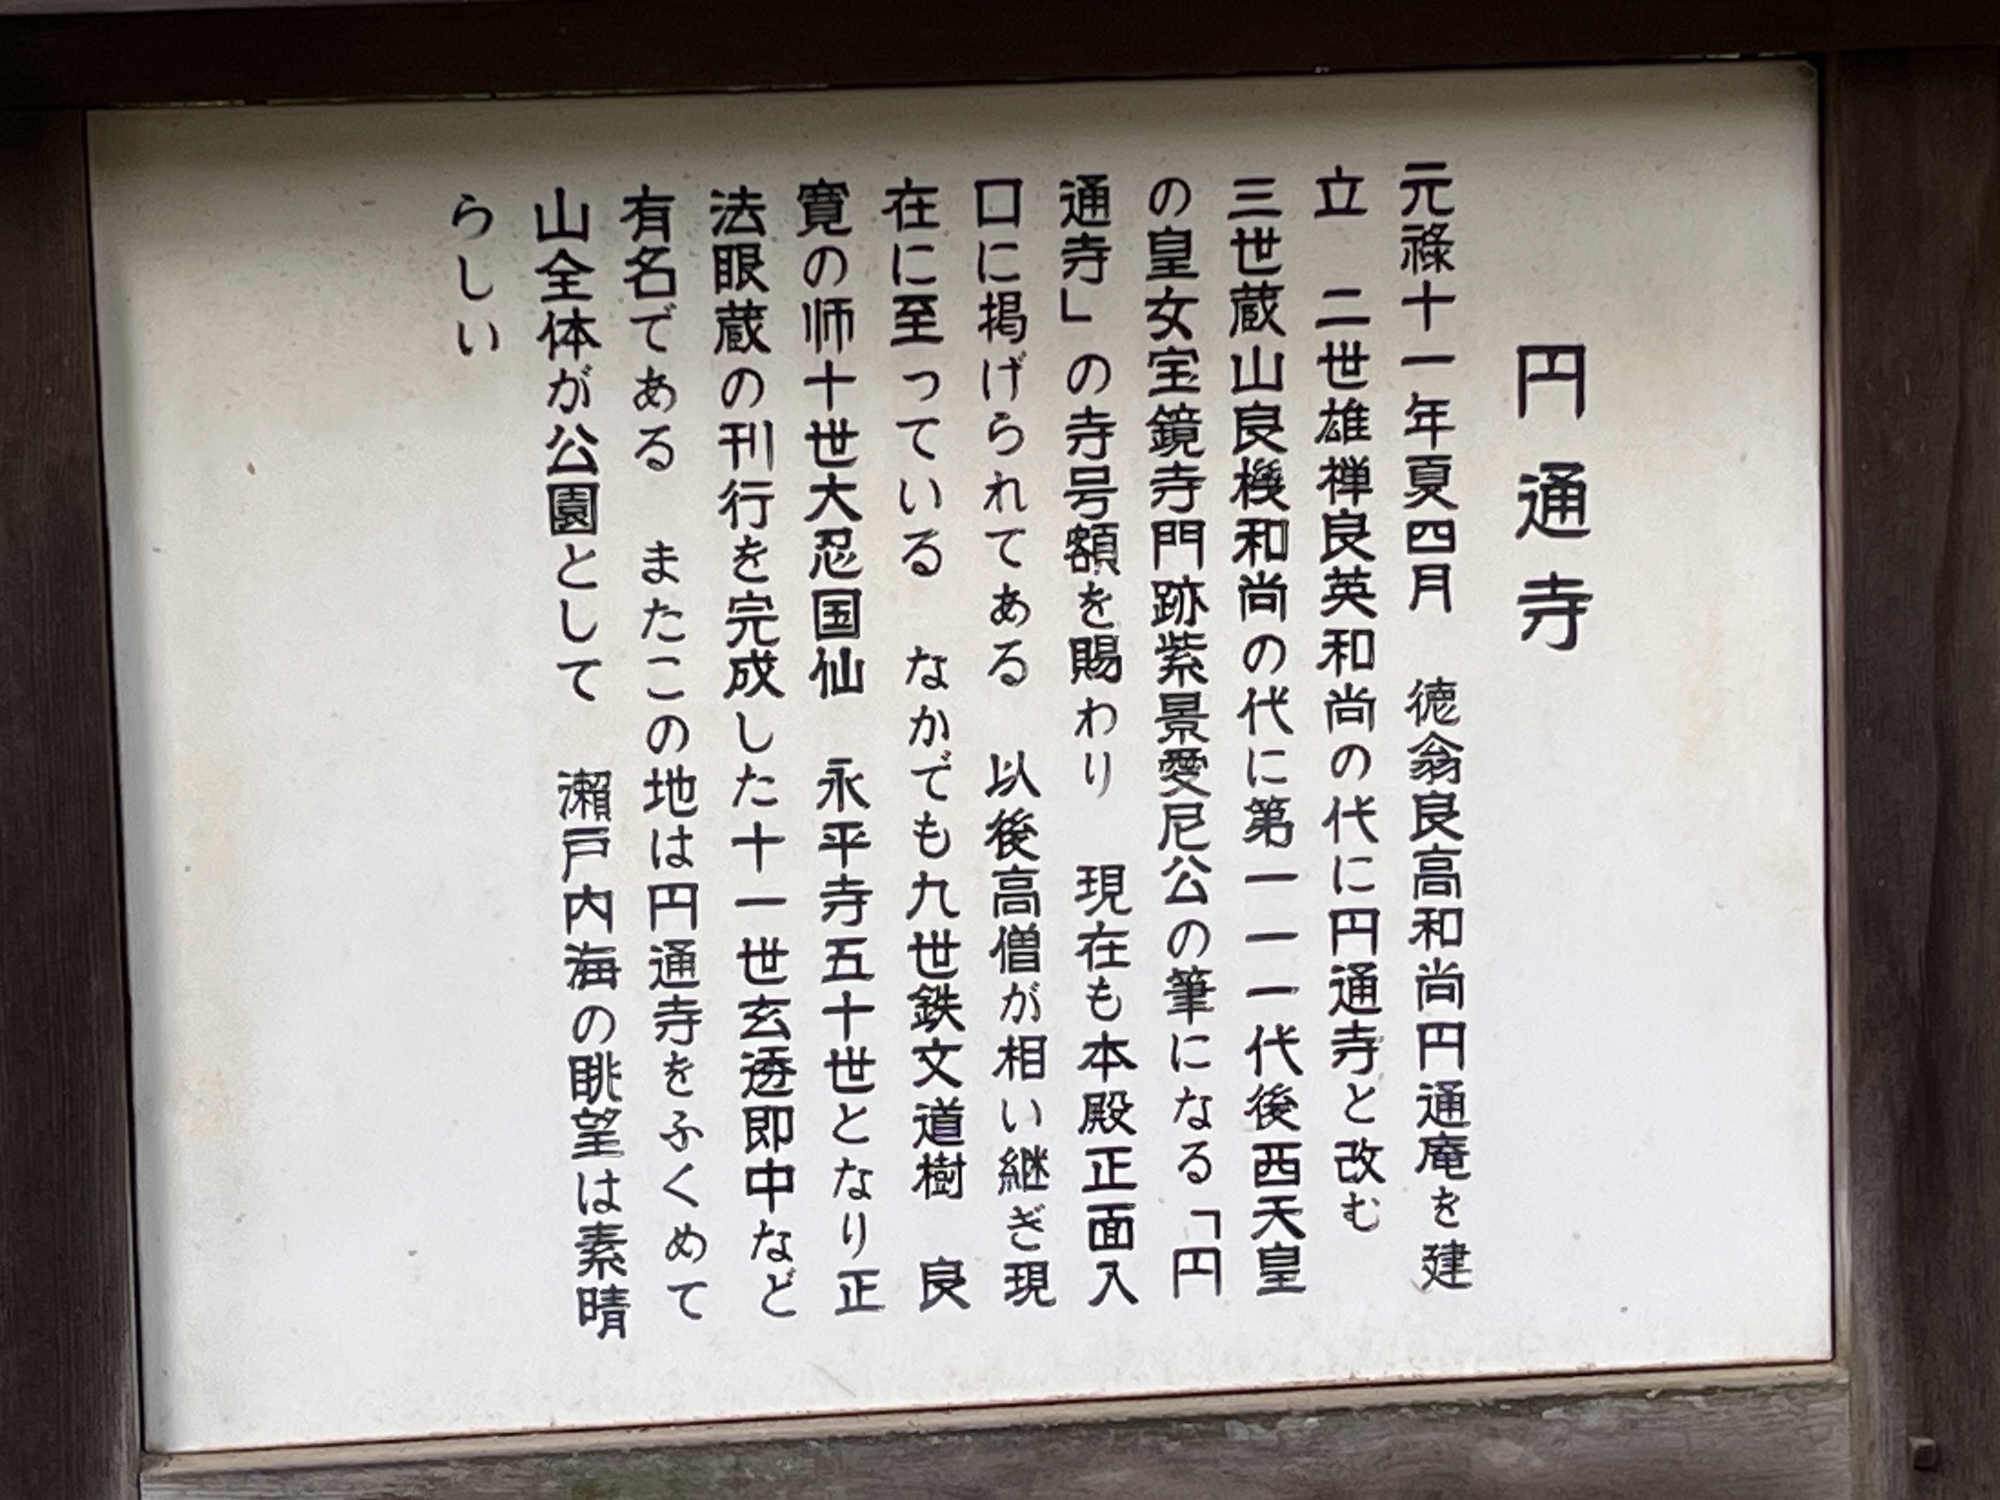 円通寺
元祿十一年夏四月　徳翁良高和尚円通庵を建
立　二世雄禅良英和尚の代に円通寺と改む
三世蔵山良機和尚の代に第一一一代後西天皇
の皇女宝鏡寺門跡紫景愛尼公の筆になる「円
通寺」の寺号額を賜わり　現在も本殿正面入
口に掲げられてある　以後高僧が相い継ぎ現
在に至っている　なかでも九世鉄文道樹　良
寛の师十世大忍国仙　永平寺五十世となり正
法眼蔵の刊行を完成した十一世玄透即中など
有名である　またこの地は円通寺をふくめて
山全体が公園として　瀬戸内海の眺望は素晴
らしい